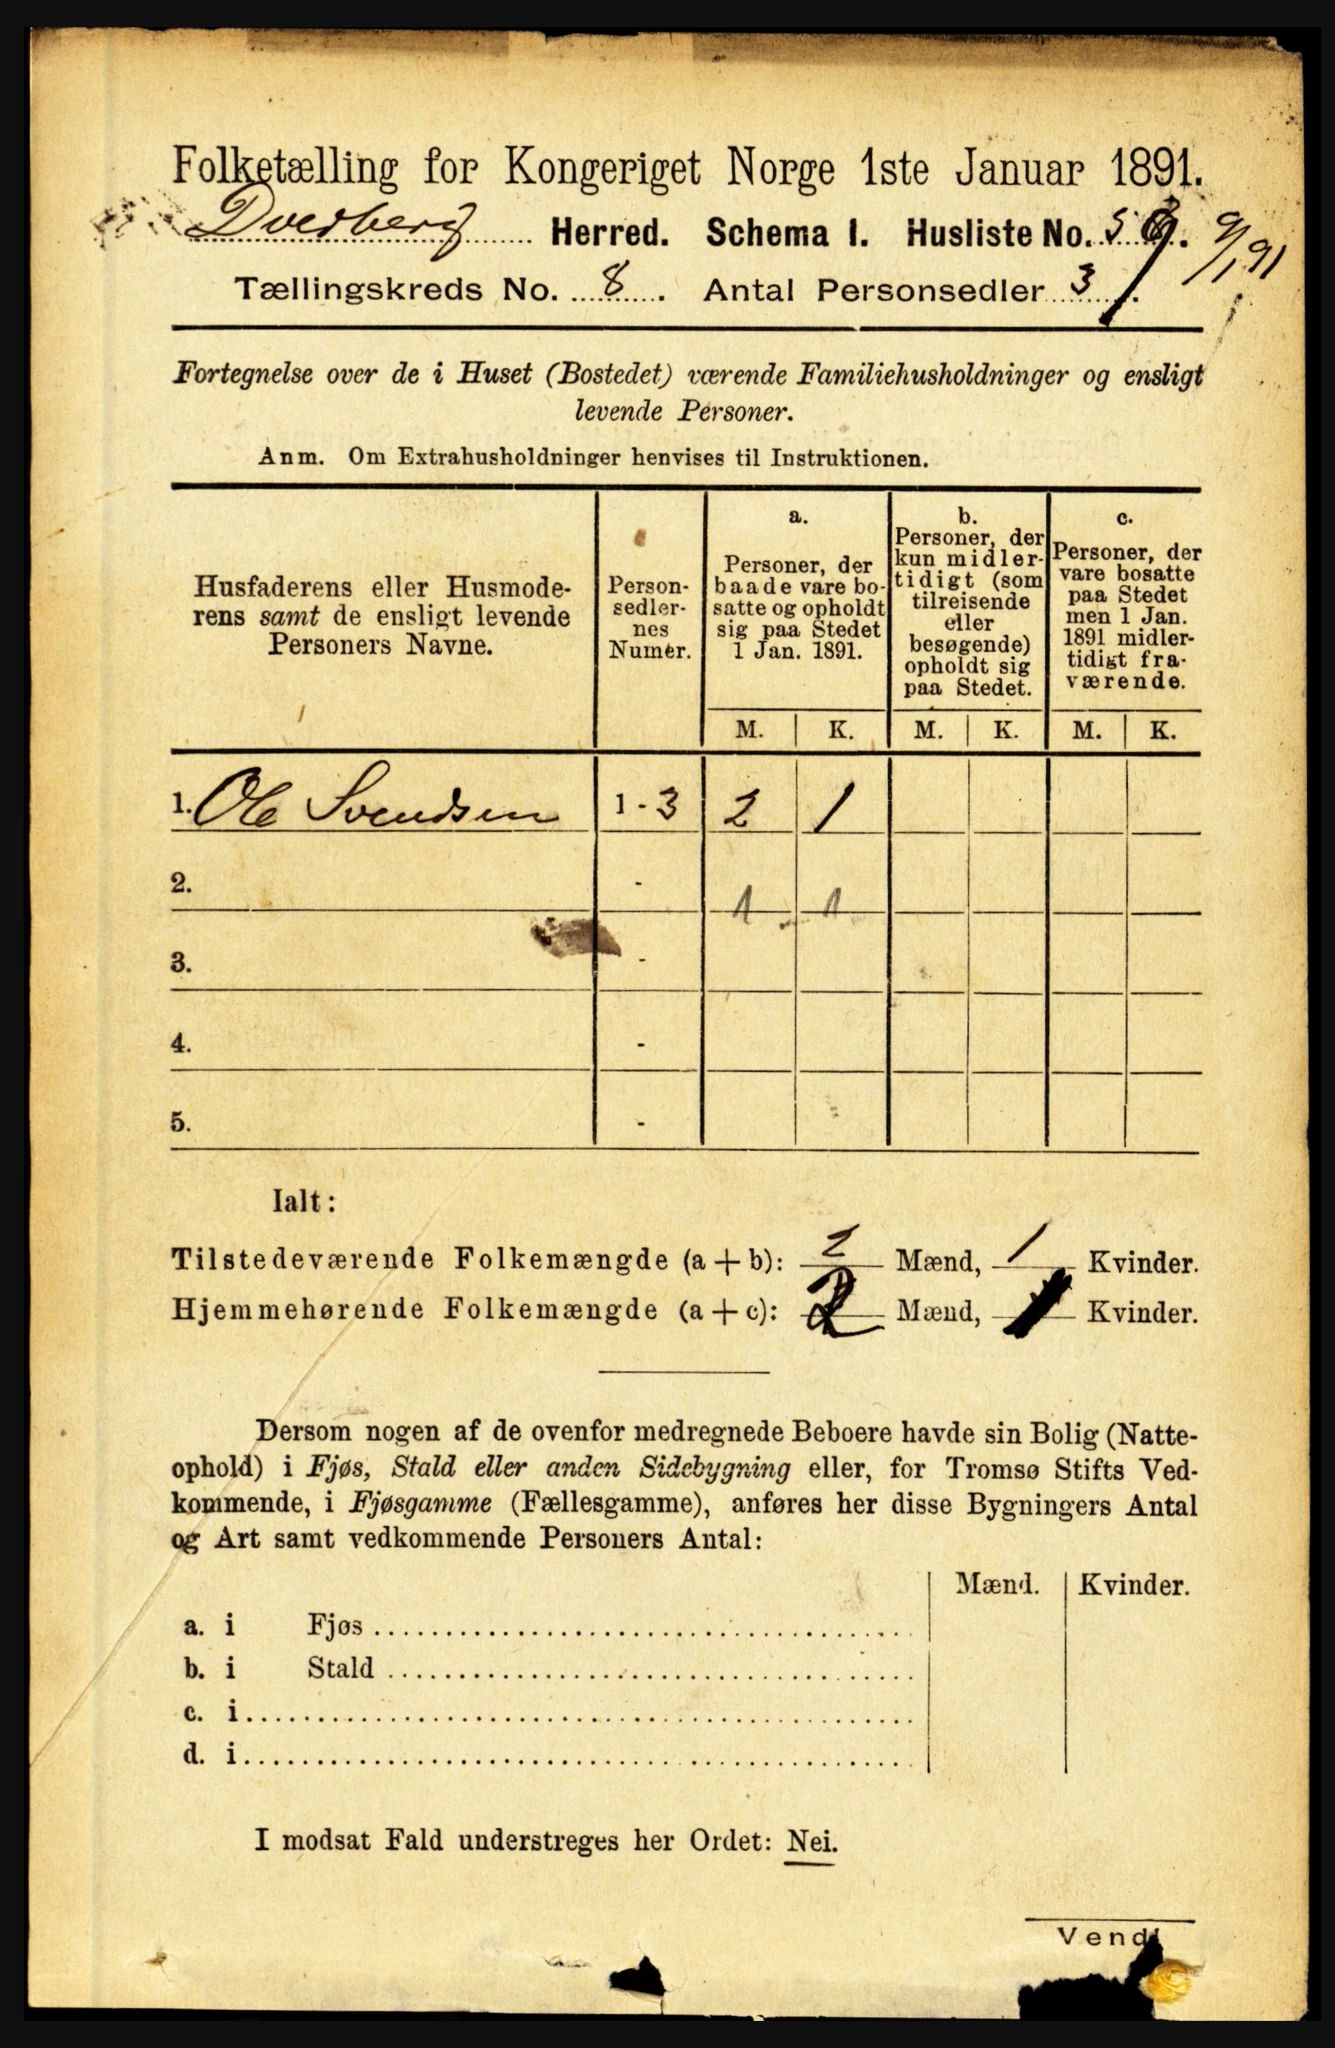 Folketælling for Kongeriget Norge 1ste Januar 1891.
Dverberg Herred. Schema I. Husliste No. 9/1 91
Tællingskreds No. 8. Antal Personsedler 3.
Fortegnelse over de i Huset (Bostedet) værende Familiehusholdninger og ensligt
levende Personer.
Anm. Om Extrahusholdninger henvises til Instruktionen.
Husfaderens eller Husmode-
rens samt de ensligt levende
Personers Navne.
Person-
sedler-
nes
Numer.
a.
Personer, der
baade vare bo-
satte og opholdt
sig paa Stedet
1 Jan. 1891.
b.
Personer, der
kun midler-
tidigt (som
tilreisende
eller
besøgende)
opholdt sig
paa Stedet.
c.
Personer, der
vare bosatte
paa Stedet
men 1 Jan.
1891 midler-
tidigt fra-
værende.
M. K. M. K. M. K.
1. Ole Svendsen 1 - 3 2 1
2. - 1 1
3. -
4. -
5. -
Ialt:
Tilstedeværende Folkemængde (a + b): 2 Mænd, 1 Kvinder.
Hjemmehørende Folkemængde (a + c): 2 Mænd, 1 Kvinder.
Dersom nogen af de ovenfor medregnede Beboere havde sin Bolig (Natte-
ophold) i Fjøs, Stald eller anden Sidebygning eller, for Tromsø Stifts Ved-
kommende, i Fjøsgamme (Fællesgamme), anføres her disse Bygningers Antal
og Art samt vedkommende Personers Antal:
Mænd. Kvinder.
a. i Fjøs
b. i Stald
c. i
d. i
I modsat Fald understreges her Ordet: Nei.
Vend!